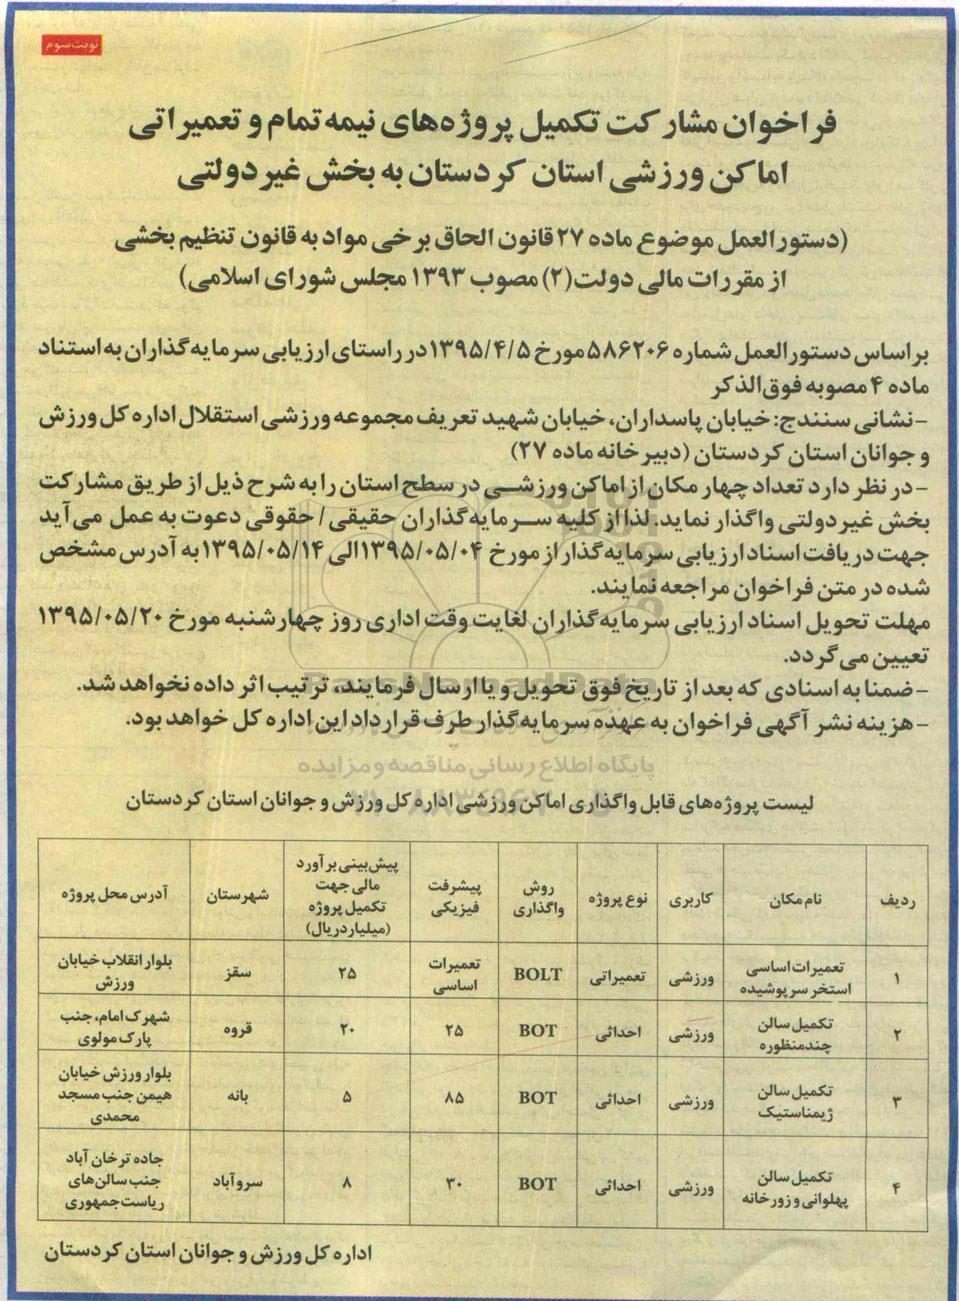 نوبت سوم
فراخوان مشارکت تکمیل پروژه‌های نیمه تمام و تعمیراتی
اماکن ورزشی استان کردستان به بخش غیر دولتی
(دستورالعمل موضوع ماده ۲۷ قانون الحاق برخی مواد به قانون تنظیم بخشی
از مقررات مالی دولت(۲) مصوب ۱۳۹۳ مجلس شورای اسلامی)
براساس دستورالعمل شماره ۵۸۶۲۰۶ مورخ ۱۳۹۵/۴/۵ در راستای ارزیابی سرمایه‌گذاران به استناد
ماده ۴ مصوبه فوق‌الذکر
- نشانی سنندج: خیابان پاسداران، خیابان شهید تعریف مجموعه ورزشی استقلال اداره کل ورزش
و جوانان استان کردستان (دبیرخانه ماده ۲۷)
- در نظر دارد تعداد چهار مکان از اماکن ورزشی در سطح استان را به شرح ذیل از طریق مشارکت
بخش غیر دولتی واگذار نماید. لذا از کلیه سرمایه‌گذاران حقیقی / حقوقی دعوت به عمل می‌آید
جهت دریافت اسناد ارزیابی سرمایه‌گذار از مورخ ۱۳۹۵/۰۵/۰۴ الی ۱۳۹۵/۰۵/۱۴ به آدرس مشخص
شده در متن فراخوان مراجعه نمایند.
مهلت تحویل اسناد ارزیابی سرمایه‌گذاران لغایت وقت اداری روز چهارشنبه مورخ ۱۳۹۵/۰۵/۲۰
تعیین می‌گردد.
- ضمنا به اسنادی که بعد از تاریخ فوق تحویل و یا ارسال فرمایند، ترتیب اثر داده نخواهد شد.
- هزینه نشر آگهی فراخوان به عهده سرمایه‌گذار طرف قرارداد این اداره کل خواهد بود.
پایگاه اطلاع رسانی مناقصه و مزایده
لیست پروژه‌های قابل واگذاری اماکن ورزشی اداره کل ورزش و جوانان استان کردستان
ردیف نام مکان کاربری نوع پروژه روش واگذاری پیشرفت فیزیکی پیش‌بینی برآورد مالی جهت تکمیل پروژه (میلیارد ریال) شهرستان آدرس محل پروژه
۱ تعمیرات اساسی استخر سرپوشیده ورزشی تعمیراتی BOLT تعمیرات اساسی ۲۵ سقز بلوار انقلاب خیابان ورزش
۲ تکمیل سالن چندمنظوره ورزشی احداثی BOT ۲۵ ۲۰ قروه شهرک امام، جنب پارک مولوی
۳ تکمیل سالن ژیمناستیک ورزشی احداثی BOT ۸۵ ۵ بانه بلوار ورزش خیابان هیمن جنب مسجد محمدی
۴ تکمیل سالن پهلوانی و زورخانه ورزشی احداثی BOT ۳۰ ۸ سروآباد جاده ترخان آباد جنب سالن‌های ریاست‌جمهوری
اداره کل ورزش و جوانان استان کردستان